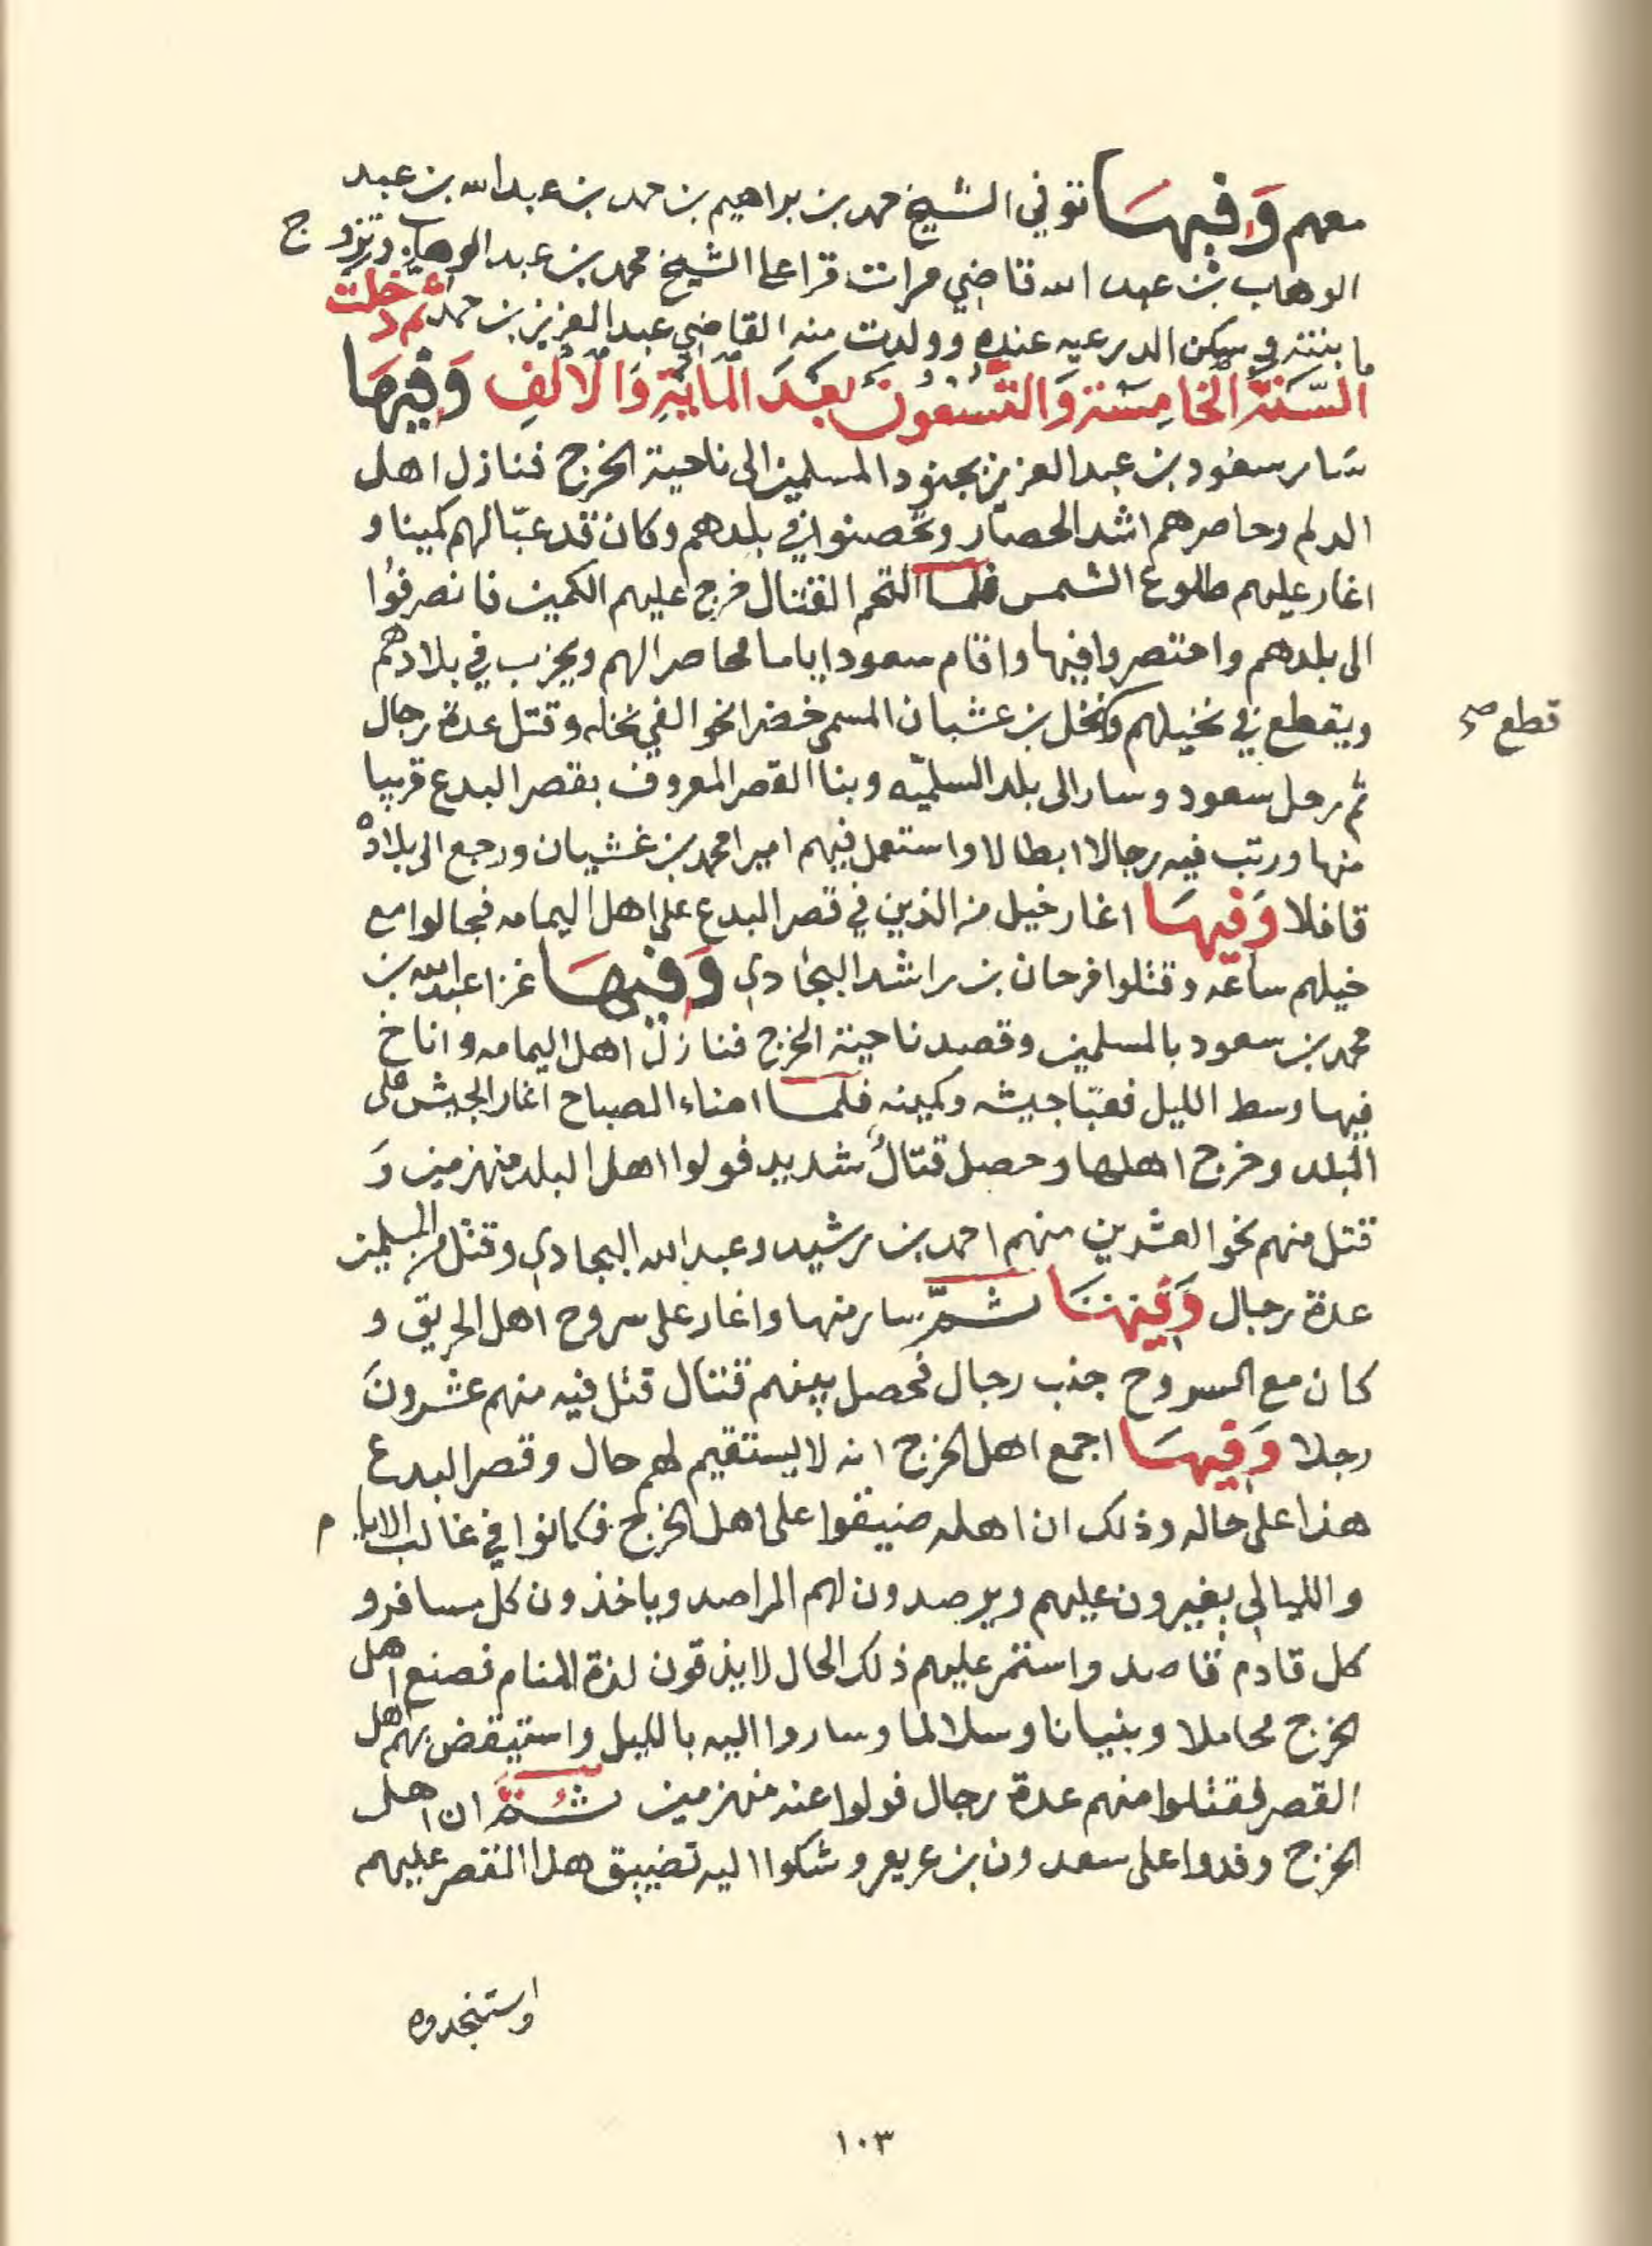 معهم وفيها توفي الشيخ حمد بن براهيم بن حمد بن عبد الله بن عبد
الوهاب بن عبد الله قاضي مرات قرا على الشيخ محمد بن عبد الوهاب وتزوج
بابنته وسكن الدرعيه عنده وولدت منه القاضي عبد العزيز بن حمد ثم دخلت
السَّنَة الخامِسَة وَالتِّسعُونَ بَعْدَ المايَةِ وَالألفِ وَفِيهَا
سَار سعود بن عبد العزيز بجنود المسلمين الى ناحية الخرج فنازل اهل
الدلم وحاصرهم اشد الحصار وتحصنوا في بلدهم وكان قد عبّا لهم كمينا و
اغار عليهم طلوع الشمس فلما التحم القتال خرج عليهم الكمين فانصرفوا
الى بلدهم واحتصروا فيها واقام سعود اياما محاصرا لهم ويحزب في بلادهم
ويقطع في نخيلهم ونخل بن عشبان المسمى خضرا نحو الفي نخله وقتل عدة رجال
قطع صح
ثم رحل سعود وسار الى بلد السلميّه وبنا القصر المعروف بقصر البدع قريبا
منها ورتب فيه رجالا ابطالا واستعمل فيهم اميرا محمد بن غشيان ورجع الى بلاده
قافلا وَفيهَا اغار خيل من الذين في قصر البدع على اهل اليمامه فجالوا مع
خيلهم ساعه وقتلوا فرحان بن راشد البجادي وَفيهَا غزا عبد الله بن
محمد بن سعود بالمسلمين وقصد ناحية الخرج فنازل اهل اليمامه واناخ
فيها وسط الليل فعبّا جيشه وكمينه فلما اضاء الصباح اغار الجيش على
البلد وخرج اهلها وحصل قتالٌ شديد فولوا اهل البلد منهزمين وَ
قتل منهم نحو العشرين منهم احمد بن رشيد وعبد الله البجادي وقتل من المسلمين
عدة رجال وَفيها ثمَّ سار منها واغار على سروح اهل الحريق و
كان مع السروح جذب رجال فحصل بينهم قتال قتل فيه منهم عشرونَ
رجلا وَفيهَا اجمع اهل الخرج انه لا يستقيم لهم حال وقصر البدع
هذا على حاله وذلك ان اهله ضيقوا على اهل الخرج فكانوا في غالب الايام
والليالي يغيرون عليهم ويرصدون لهم المراصد وياخذون كل مسافر و
كل قادم قاصد واستمر عليهم ذلك الحال لا يذقون لذة المنام فصنع اهل
الخرج محاملا وبنيانا وسلالما وساروا اليه بالليل واستيقض بهم اهل
القصر فقتلوا منهم عدة رجال فولوا عنه منهزمين ثمَّ ان اهل
الخرج وفدوا على سعدون بن عريعر وشكوا اليه تضييق هذا القصر عليهم
واستنجدوه
١٠٣